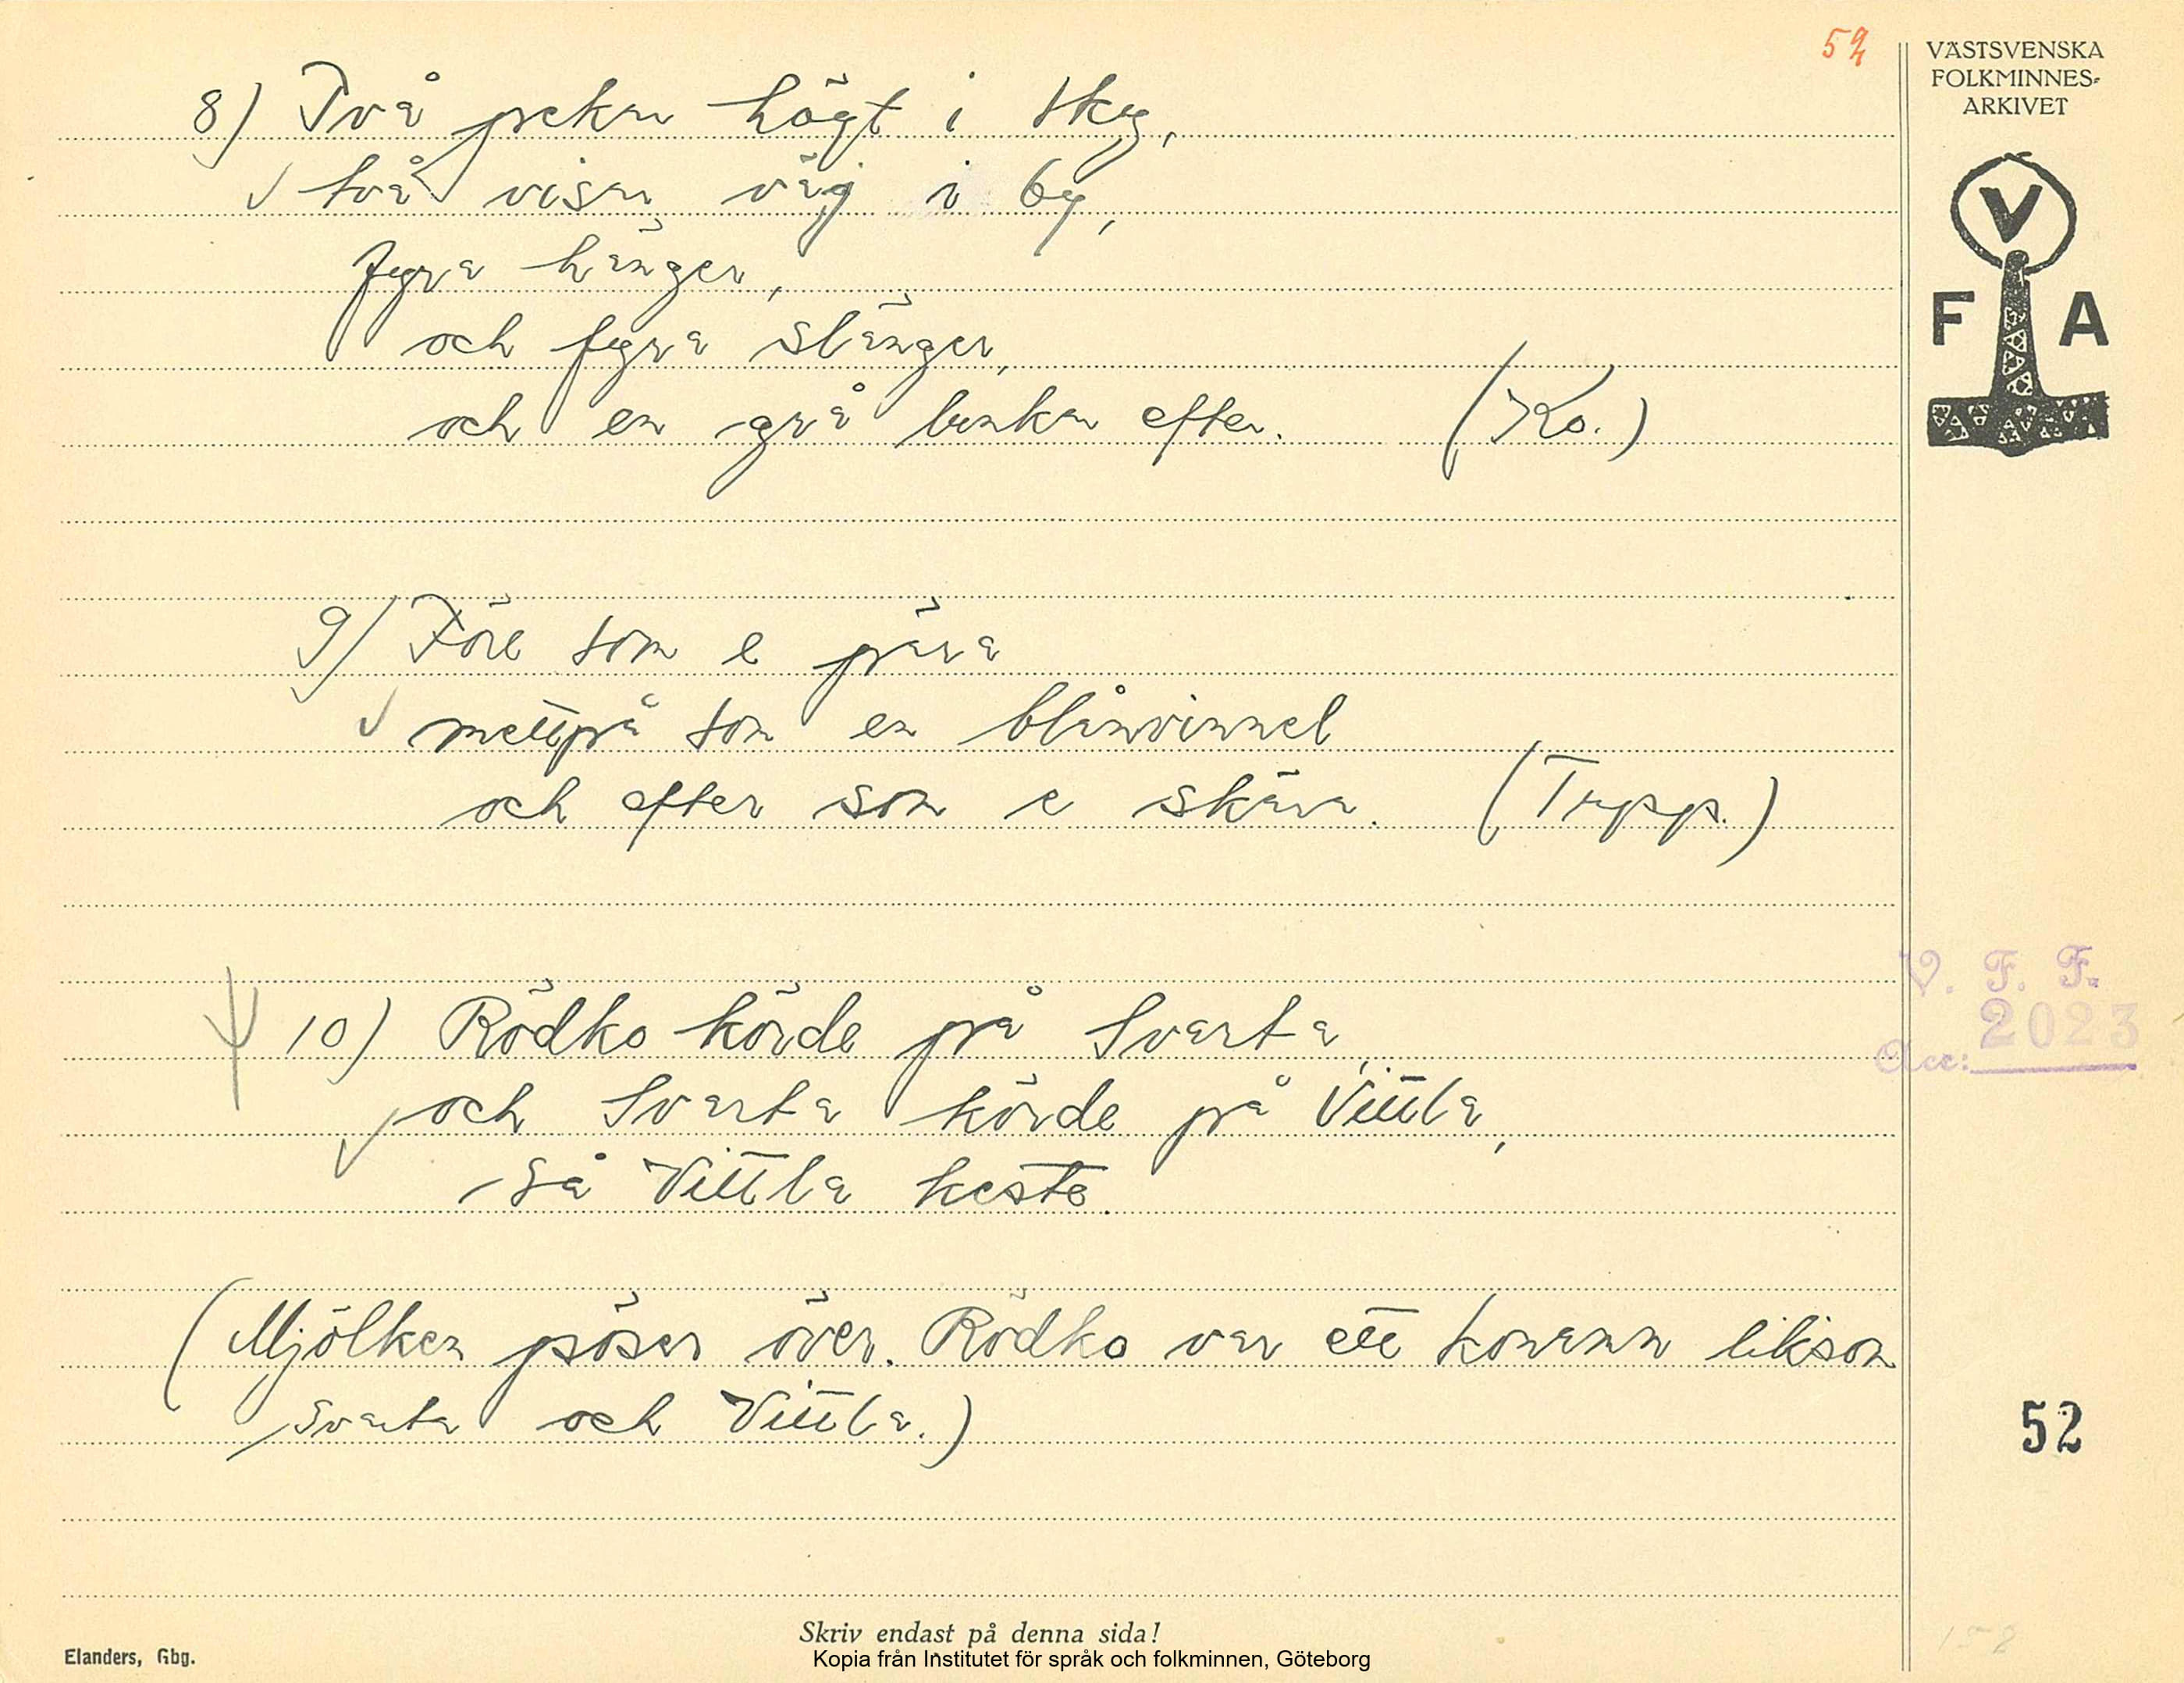 52
VÄSTSVENSKA
FOLKMINNES-
ARKIVET
V
F A
8) Två pekar högt i sky,
två visar väg i by,
fyra hänger,
och fyra slänger,
och en grå lunkar efter. (Ko.)
9) Före som e pära
mettpå som en blånvinnel
och efter som e skära. (Tupp.)
10) Rödko körde på Svarta,
och Svarta körde på Vittla,
så Vittla keste.
(Mjölken pöser över. Rödko var ett konamn liksom
Svarta och Vittla.)
V. F. F.
Acc: 2023
52
Skriv endast på denna sida!
Elanders, Gbg.
Kopia från Institutet för språk och folkminnen, Göteborg